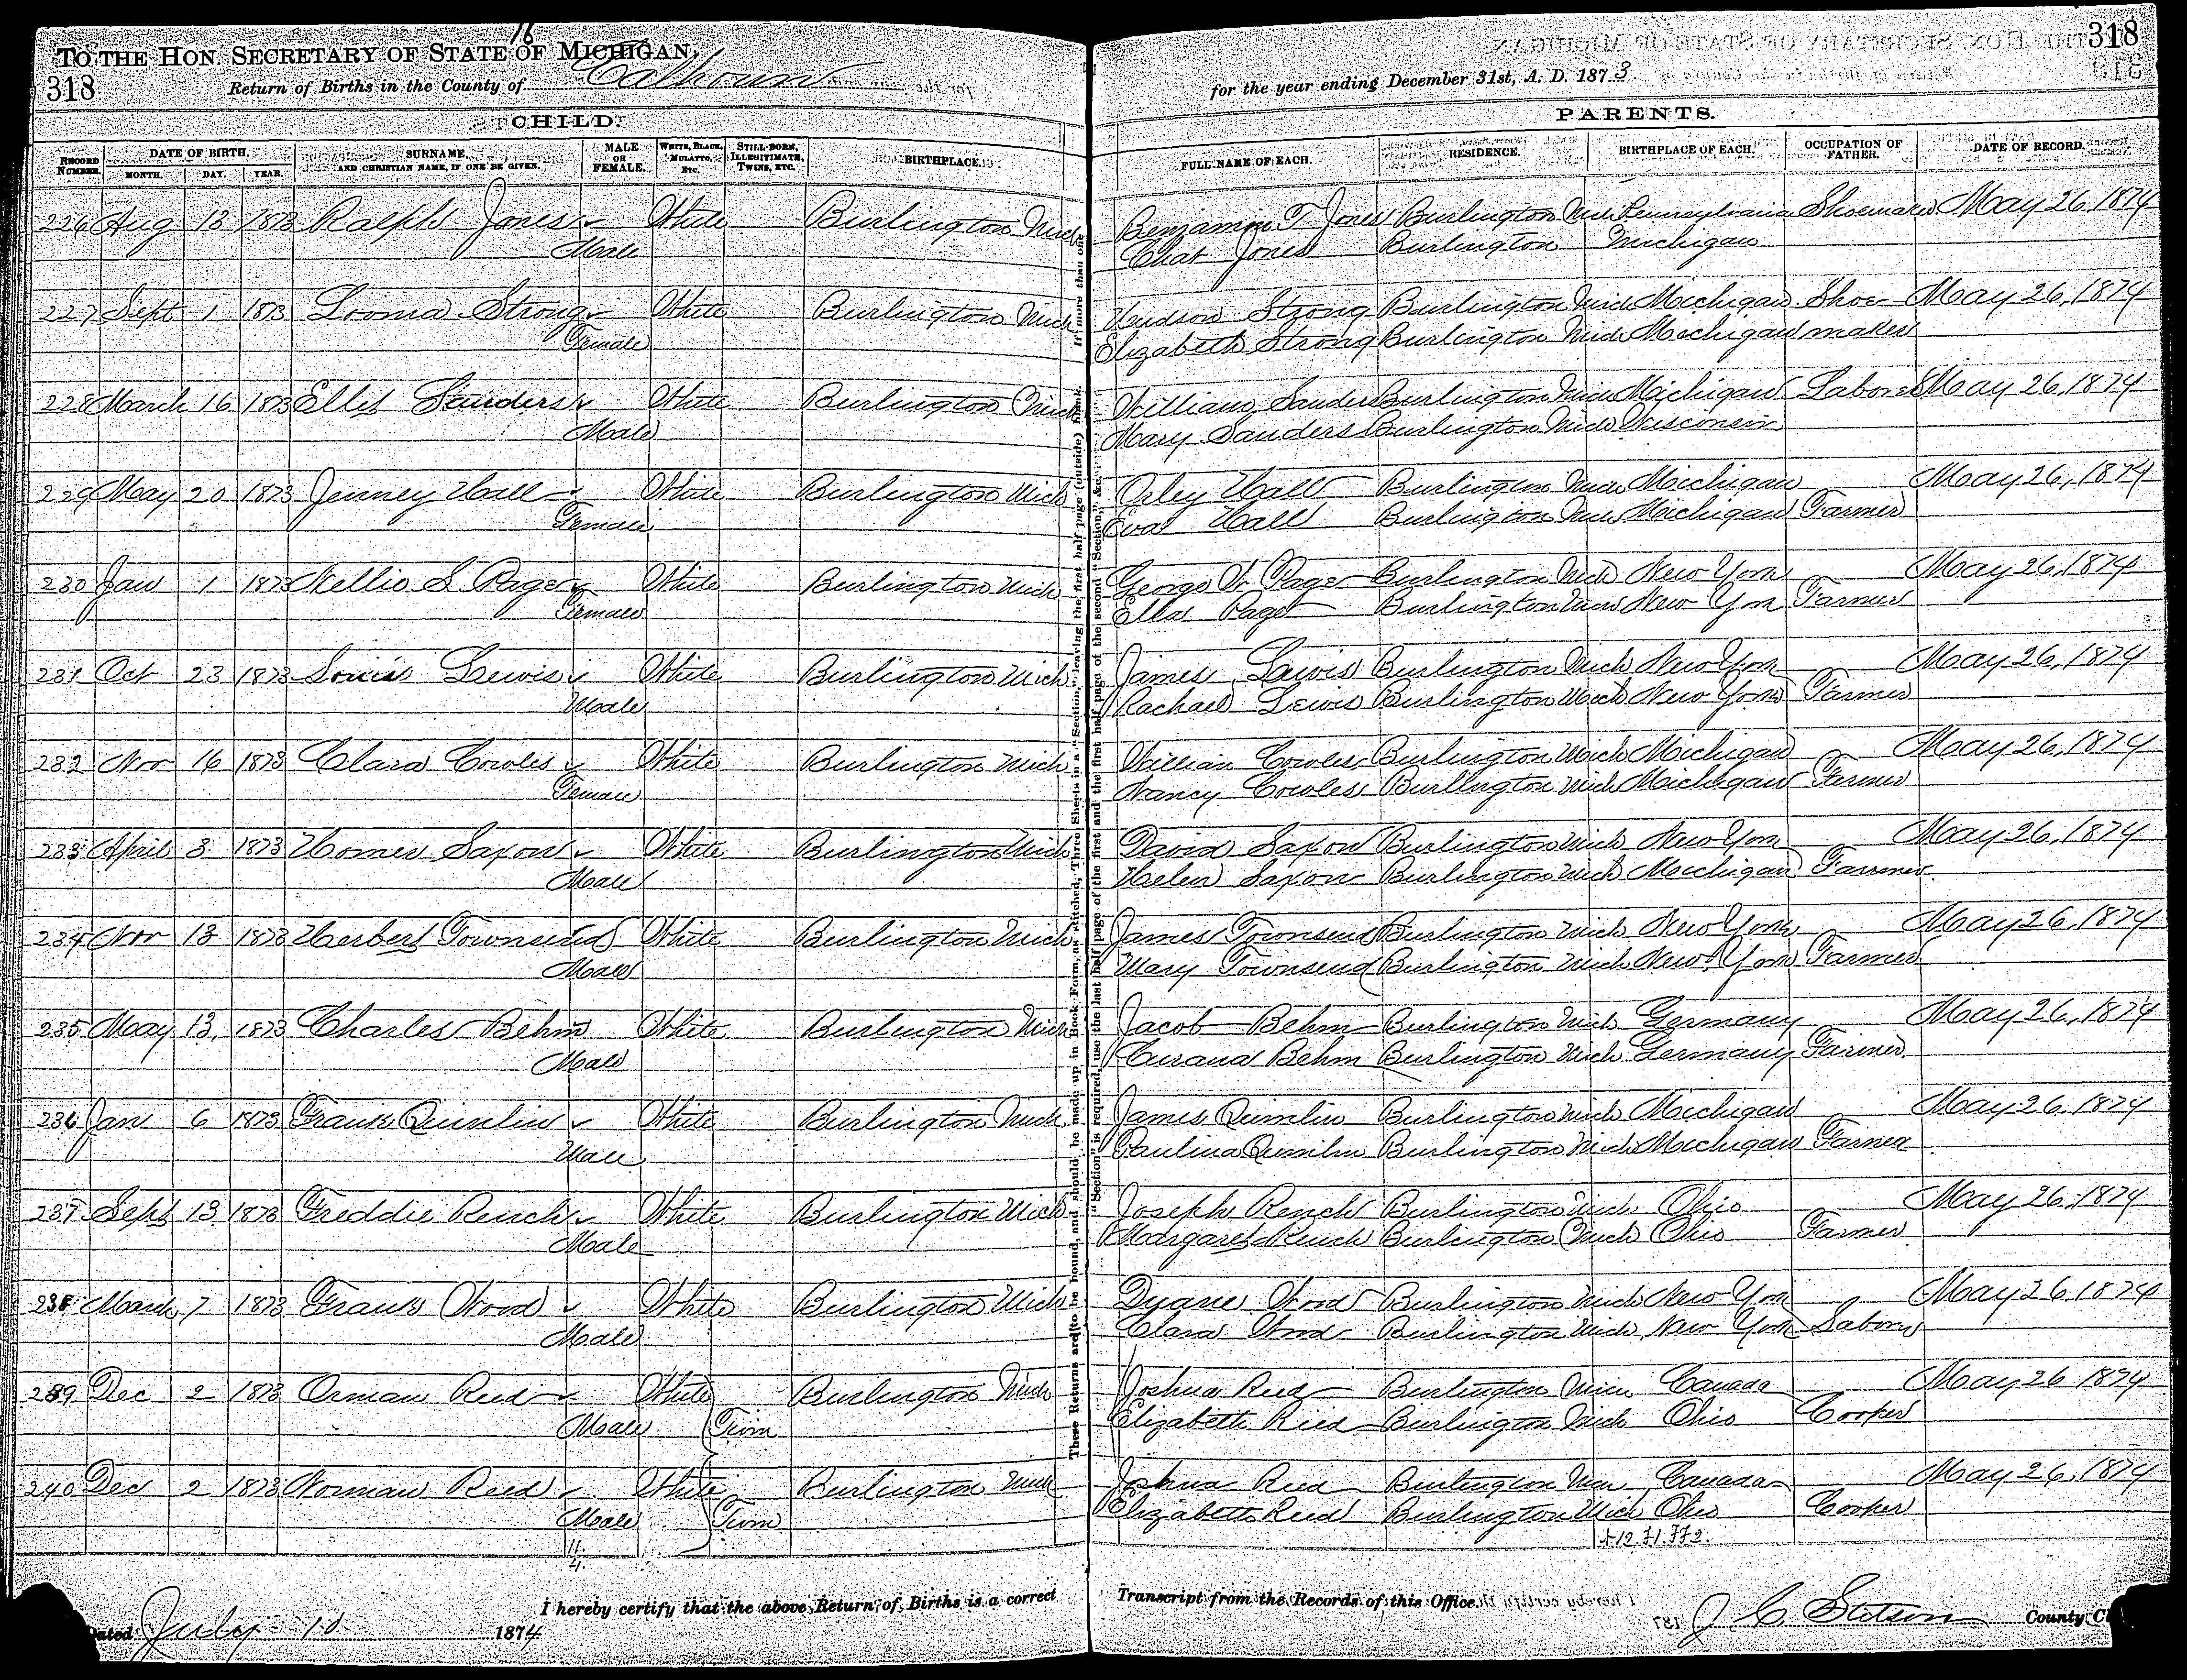 16
TO THE HON. SECRETARY OF STATE OF MICHIGAN,
318
Return of Births in the County of Calhoun
for the year ending December 31st, A. D. 1873
318
CHILD.
PARENTS.
RECORD NUMBER. DATE OF BIRTH. MONTH. DAY. YEAR. SURNAME, AND CHRISTIAN NAME, IF ONE BE GIVEN. MALE OR FEMALE. WHITE, BLACK, MULATTO, ETC. STILL-BORN, ILLEGITIMATE, TWINS, ETC. BIRTHPLACE. FULL NAME OF EACH. RESIDENCE. BIRTHPLACE OF EACH. OCCUPATION OF FATHER. DATE OF RECORD.
226 Aug 13 1873 Ralph Jones White Burlington Mich Benjamin T Jones Burlington Mich Pennsylvania Shoemaker May 26 1874
Male Chat Jones Burlington Michigan
227 Sept 1 1873 Looma Strong White Burlington Mich Hudson Strong Burlington Mich Michigan Shoe- May 26, 1874
Female Elizabeth Strong Burlington Mich Michigan maker
228 March 16 1873 Sanders White Burlington Mich William Sanders Burlington Mich Michigan Laborer May 26, 1874
Male Mary Sanders Burlington Mich Wisconsin
229 May 20 1873 Jenney Hall White Burlington Mich Hall Burlington Mich Michigan May 26, 1874
Female Eva Hall Burlington Mich Michigan Farmer
230 Jan 1 1873 Nellie S Page White Burlington Mich George W Page Burlington Mich New York May 26, 1874
Female Ella Page Burlington Mich New York Farmer
231 Oct 23 1873 Louis Lewis White Burlington Mich James Lewis Burlington Mich New York May 26, 1874
Male Rachael Lewis Burlington Mich New York Farmer
232 Nov 16 1873 Clara Cowles White Burlington Mich William Cowles Burlington Mich Michigan May 26, 1874
Female Nancy Cowles Burlington Mich Michigan Farmer
233 April 3 1873 Homer Saxon White Burlington Mich David Saxon Burlington Mich New York May 26, 1874
Male Helen Saxon Burlington Mich Michigan Farmer
234 Nov 13 1873 Herbert Townsend White Burlington Mich James Townsend Burlington Mich New York May 26, 1874
Male Mary Townsend Burlington Mich New York Farmer
235 May 13, 1873 Charles Behm White Burlington Mich Jacob Behm Burlington Mich Germany May 26, 1874
Male Behm Burlington Mich Germany Farmer
236 Jan 6 1873 Frank Quimlin White Burlington Mich James Quimlin Burlington Mich Michigan May 26, 1874
Male Paulina Quimlin Burlington Mich Michigan Farmer
237 Sept 13 1873 Freddie Rench White Burlington Mich Joseph Rench Burlington Mich Ohio May 26, 1874
Male Margaret Rench Burlington Mich Ohio Farmer
238 March 7 1873 Frank Wood White Burlington Mich Duane Wood Burlington Mich New York May 26 1874
Male Clara Wood Burlington Mich New York Laborer
239 Dec 2 1873 Orman Reed White Burlington Mich Joshua Reed Burlington Mich Canada May 26 1874
Male Twin Elizabeth Reed Burlington Mich Ohio Cooper
240 Dec 2 1873 Norman Reed White Burlington Mich Joshua Reed Burlington Mich Canada May 26, 1874
Male Twin Elizabeth Reed Burlington Mich Ohio Cooper
11
4
These Returns are to be bound, and should be made up in Book Form, as stitched, Three Sheets in a "Section," leaving the first half page (outside) blank. If more than one
"Section" is required, use the last half page of the first and the first half page of the second "Section," &c.
Dated July 10 1874
I hereby certify that the above Return of Births is a correct Transcript from the Records of this Office.
J. C. Stetson County